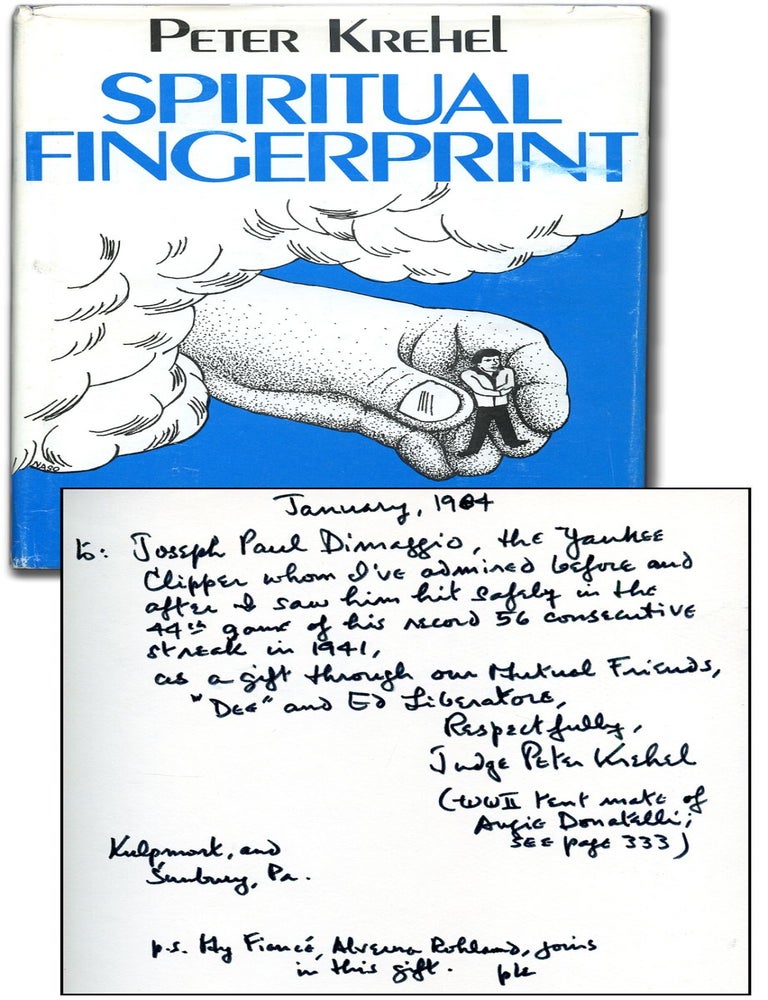 Peter Krehel
SPIRITUAL
FINGERPRINT
NASO
January, 1984
to: Joseph Paul Dimaggio, the Yankee
Clipper whom I've admired before and
after I saw him hit safely in the
44th game of his record 56 consecutive
streak in 1941,
as a gift through our Mutual Friends,
"Dee" and Ed Liberatore,
Respectfully,
Judge Peter Krehel
(WWII tent mate of
Augie Donatelli;
see page 333)
Kulpmont, and
Sunbury, Pa.
p.s. My Fiancé, Alverna Rohland, joins
in this gift. pk